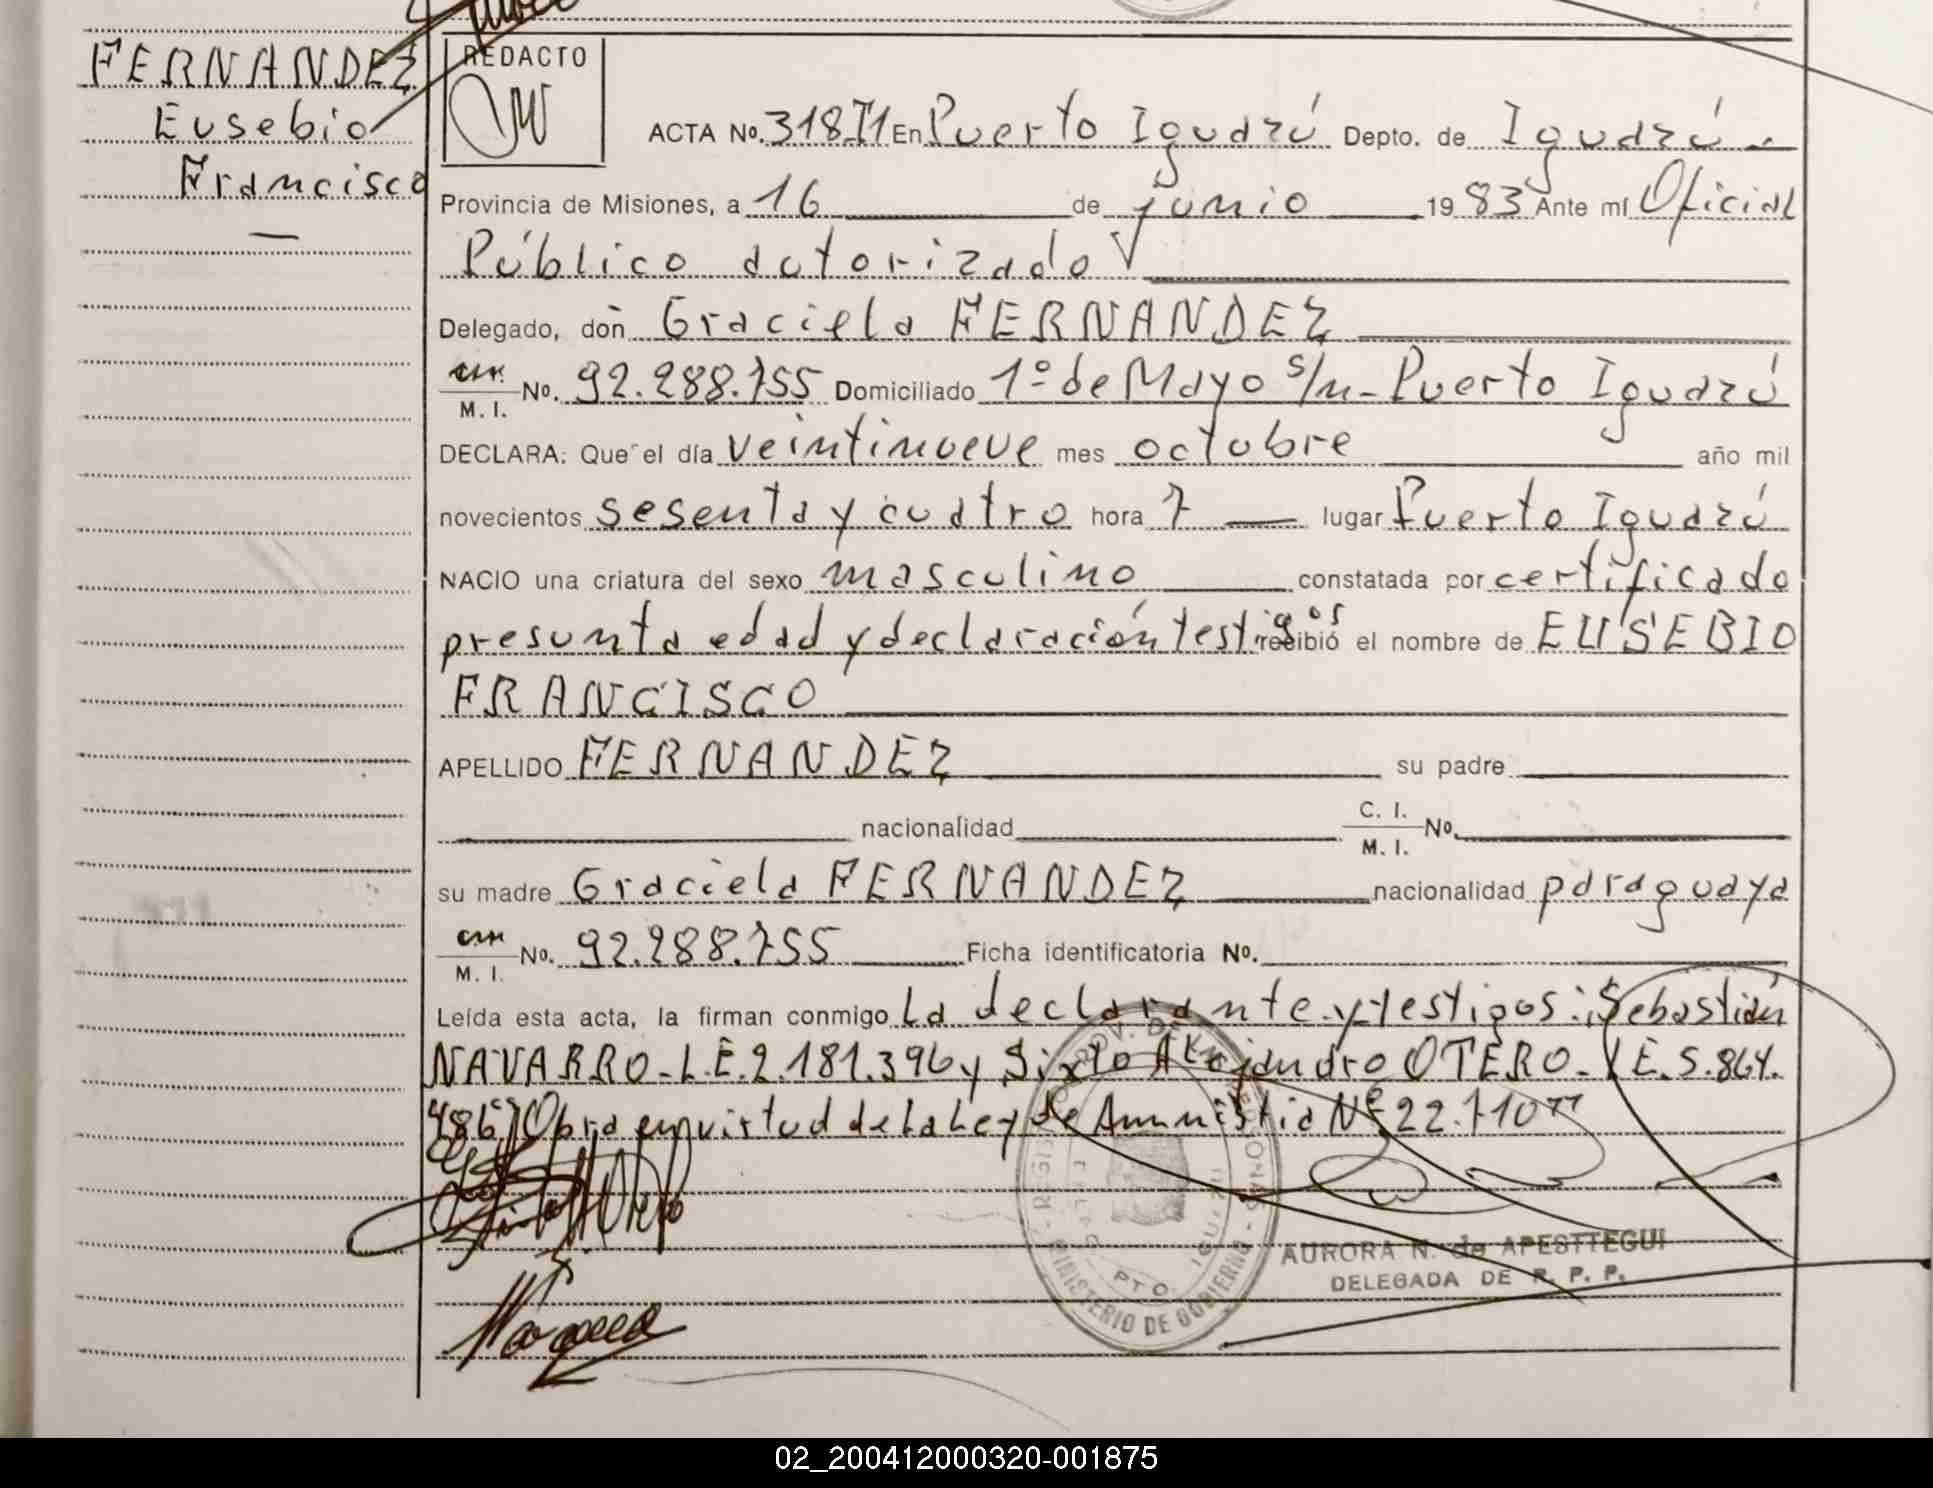 FERNANDEZ
Eusebio
Francisco
REDACTO
ACTA No. 318 T1 En Puerto Iguazú Depto. de Iguazú
Provincia de Misiones, a 16 de junio 1983 Ante mí Oficial
Público autorizado
Delegado, don Graciela FERNANDEZ
M. I. No. 92.288.755 Domiciliado 1º de Mayo s/n - Puerto Iguazú
DECLARA: Que el día veintinueve mes octubre año mil
novecientos sesenta y cuatro hora 7 lugar Puerto Iguazú
NACIO una criatura del sexo masculino constatada por certificado
presunta edad y declaración testigos recibió el nombre de EUSEBIO
FRANCISCO
APELLIDO FERNANDEZ su padre
nacionalidad C. I. M. I. No.
su madre Graciela FERNANDEZ nacionalidad paraguaya
M. I. No. 92.288.755 Ficha identificatoria No.
Leída esta acta, la firman conmigo la declarante y testigos: Sebastián
NAVARRO - L.E. 2.181.396 y Sixto Alejandro OTERO - L.E. 5.864.
486 "Obra en virtud de la Ley de Amnistia Nº 22.710"
REGISTRO PROV. DE LAS PERSONAS - MINISTERIO DE GOBIERNO
PTO. IGUAZU
AURORA N. de APESTTEGUI
DELEGADA DE R. P. P.
02_200412000320-001875